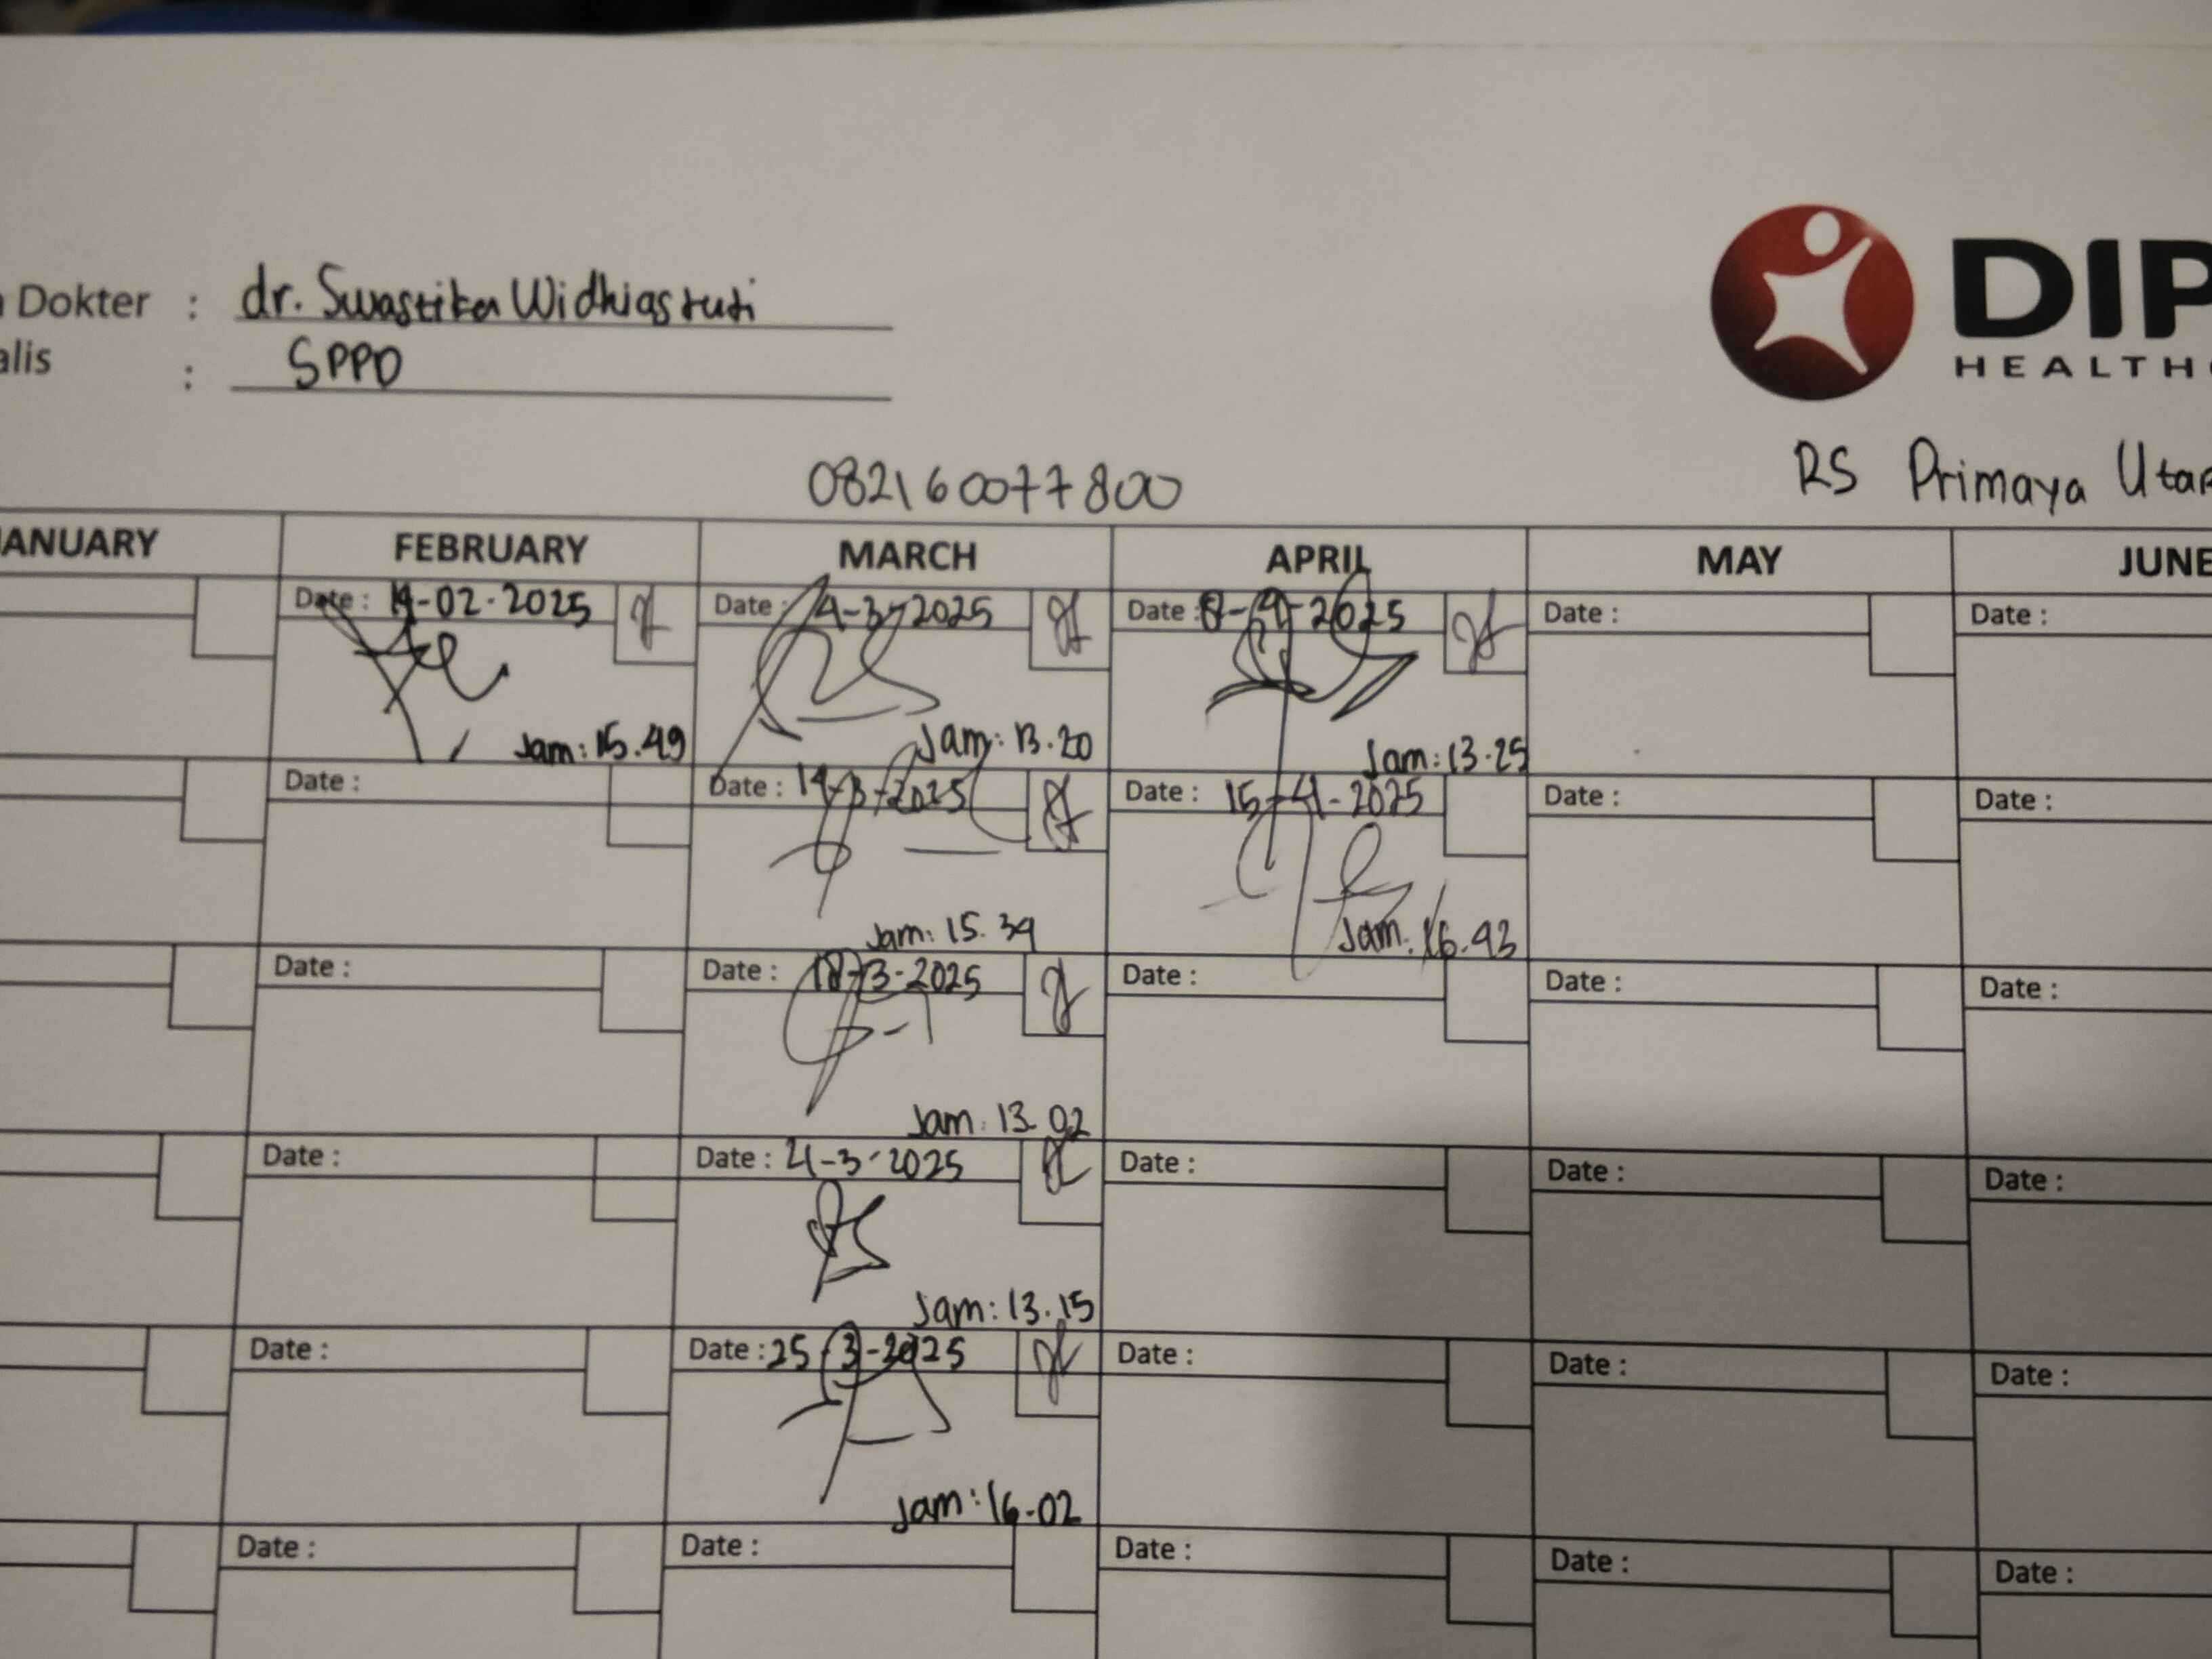 Dokter : dr. Swastika Widhiastuti
alis : SPPD
DIP
HEALTH
082160077800
RS Primaya Utar
ANUARY FEBRUARY MARCH APRIL MAY JUNE
Date : 14-02-2025 Date : 4-3-2025 Date : 8-4-2025 Date : Date :
Jam: 15.49 Jam: 13.20 Jam: 13.25
Date : Date : 14-3-2025 Date : 15-4-2025 Date : Date :
Jam: 15.34 Jam: 16.43
Date : Date : 18-3-2025 Date : Date : Date :
Jam: 13.02
Date : Date : 21-3-2025 Date : Date : Date :
Jam: 13.15
Date : Date : 25-3-2025 Date : Date : Date :
Jam: 16-02
Date : Date : Date : Date : Date :